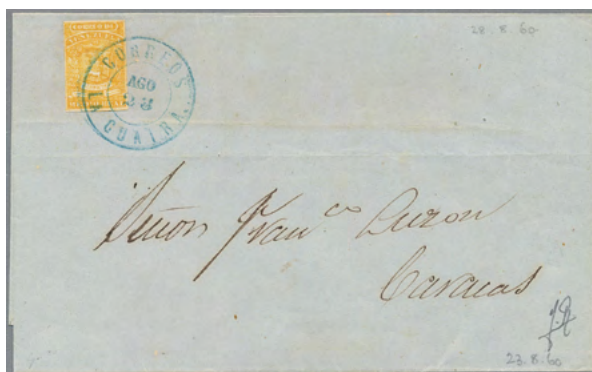 28.8.60
CORREOS
AGO
23
LA GUAIRA.
Señor Fran.co Duron
Caracas
23.8.60